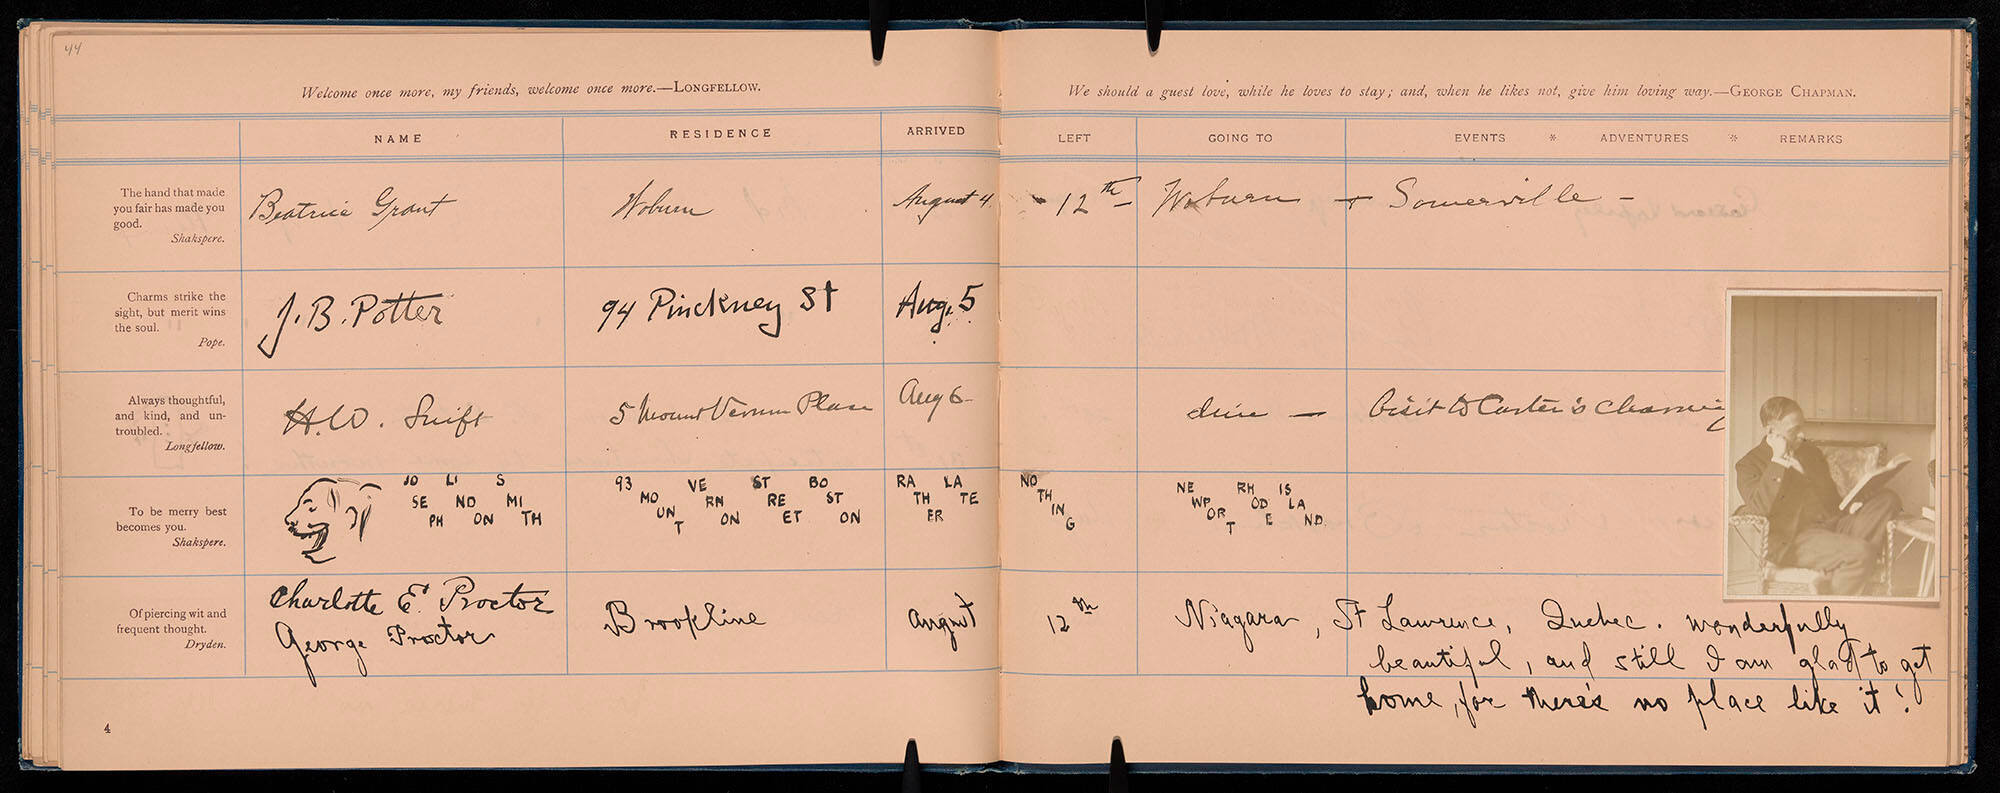 44
Welcome once more, my friends, welcome once more.—LONGFELLOW.
We should a guest love, while he loves to stay; and, when he likes not, give him loving way.—GEORGE CHAPMAN.
NAME RESIDENCE ARRIVED LEFT GOING TO EVENTS * ADVENTURES * REMARKS
The hand that made
you fair has made you
good.
Shakspere.
Beatrice Grant Woburn August 4 - 12th Woburn + Somerville -
Charms strike the
sight, but merit wins
the soul.
Pope.
J. B. Potter 94 Pinckney St Aug. 5
Always thoughtful,
and kind, and un-
troubled.
Longfellow.
H. W. Swift 5 Mount Vernon Place Aug 6 dine — Visit to Carter's charming
To be merry best
becomes you.
Shakspere.
JO LI S
SE ND MI
PH ON TH
93 VE ST BO
MO RN RE ST
UN T ON ET ON
RA LA
TH TE
ER
NO
TH
IN
G
NE RH IS
WP OD LA
OR T E ND
Of piercing wit and
frequent thought.
Dryden.
Charlotte E. Proctor
George Proctor
Brookline August 12th Niagara, St Lawrence, Quebec. wonderfully
beautiful, and still I am glad to get
home, for there's no place like it!
4